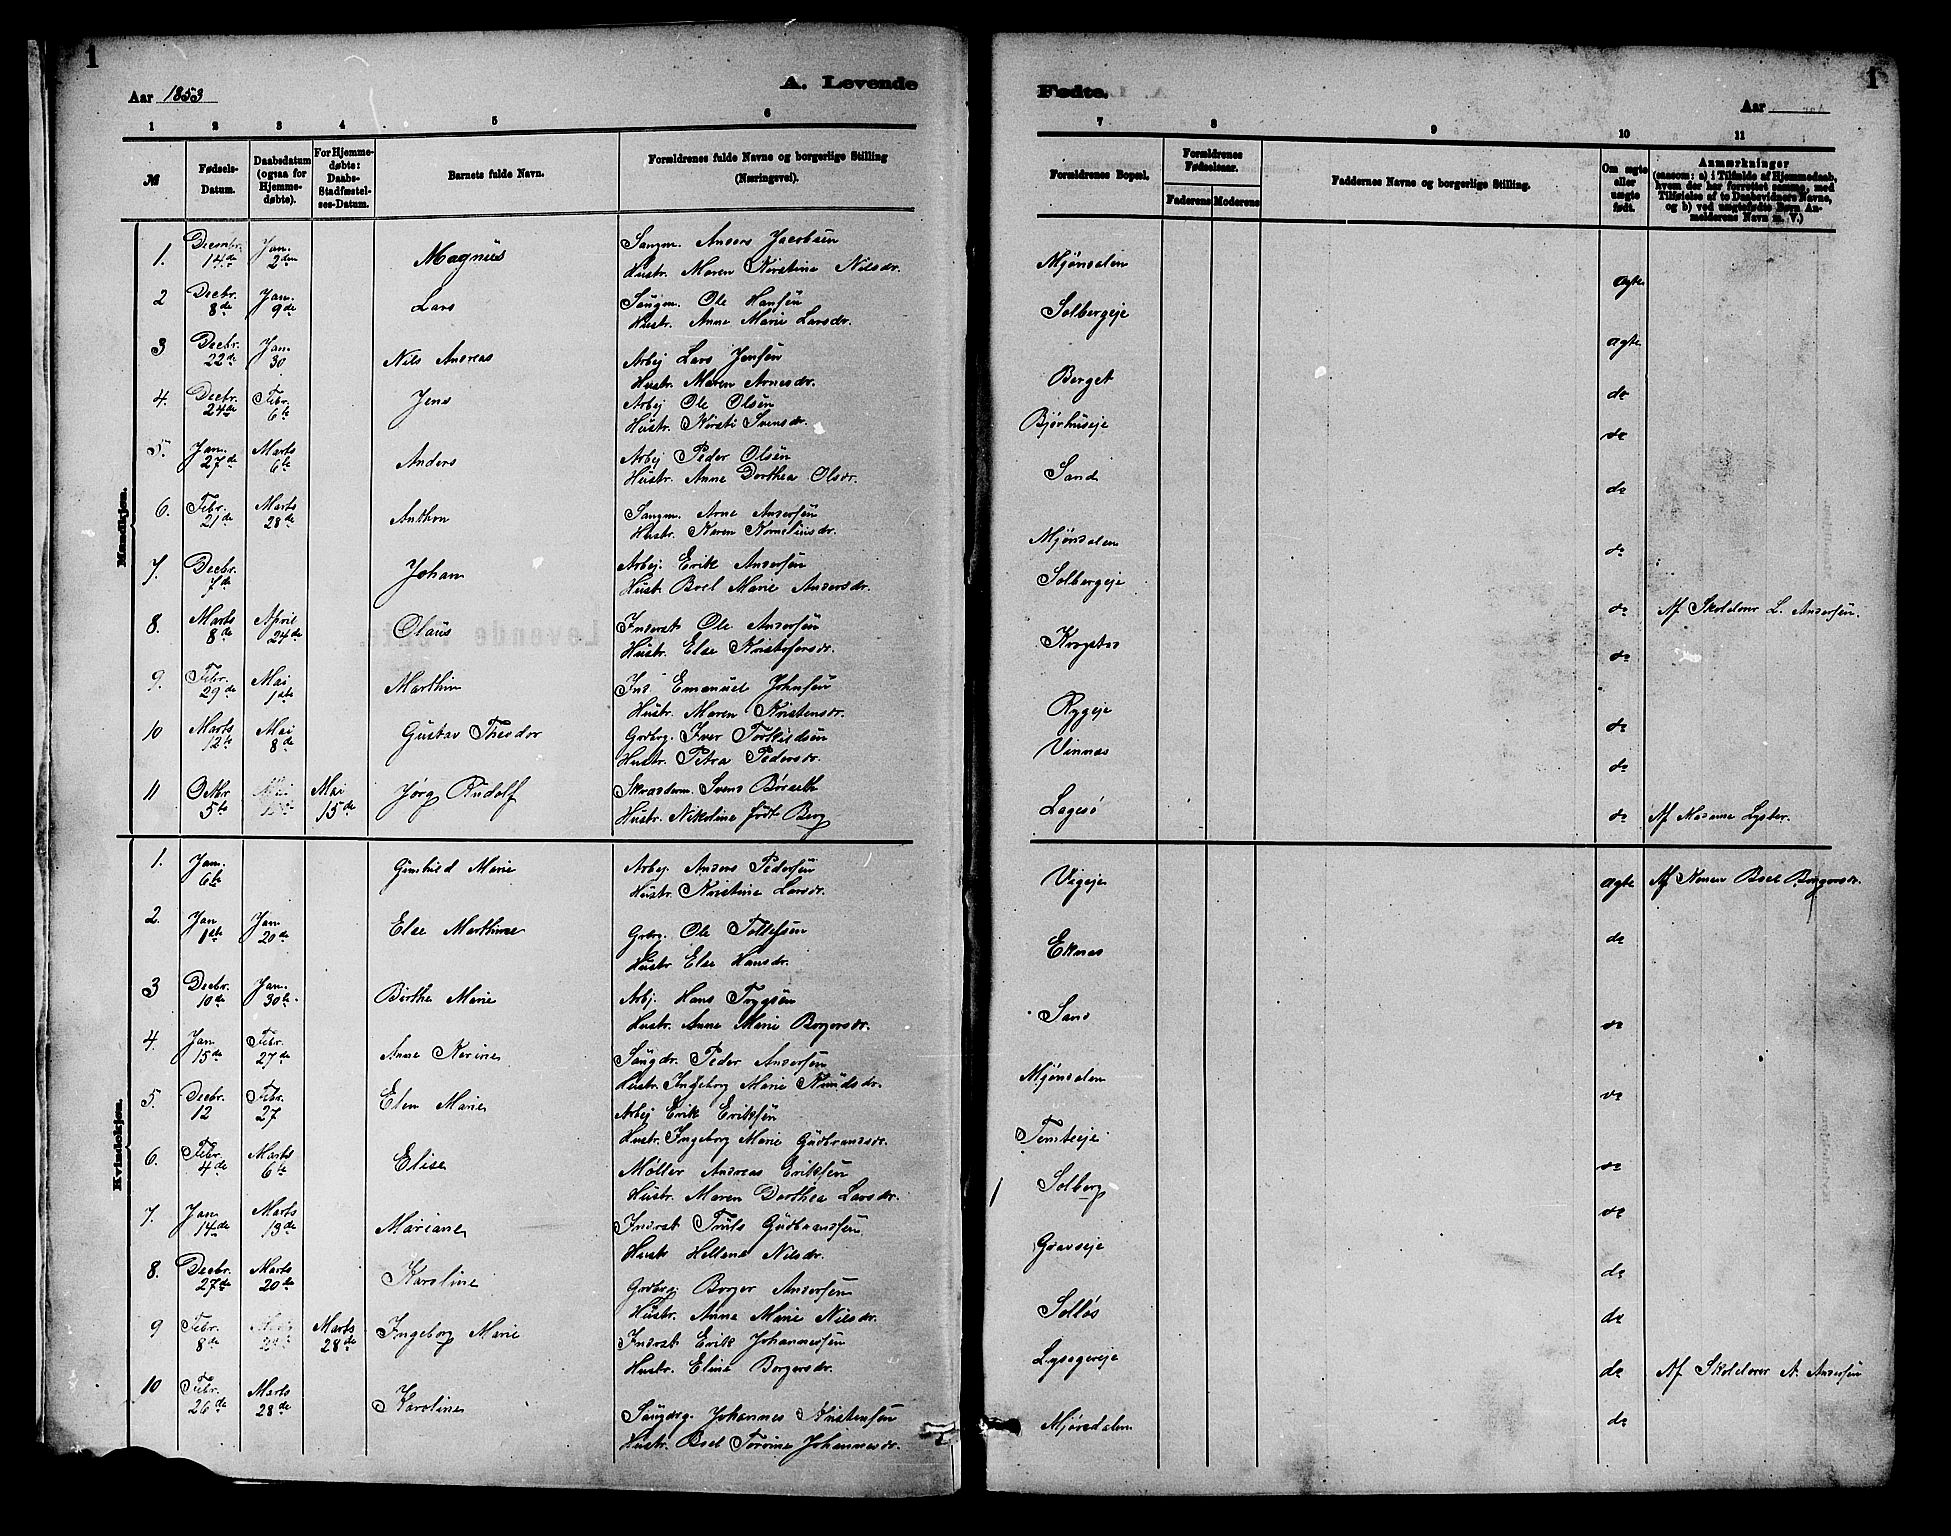 1
Aar 1853
A. Levende
1 2 3 4 5 6
№
Fødsels-
Datum.
Daabsdatum
(ogsaa for
Hjemme-
døbte).
For Hjemme-
døbte:
Daabs-
Stadfæstel-
ses-Datum.
Barnets fulde Navn.
Forældrenes fulde Navne og borgerlige Stilling
(Næringsvei).
Mandkjøn.
1. Decmbr. 14de Jan. 2den Magnus Saugm. Anders Jacobsen
Hustr. Maren Kirstine Nilsdr.
2 Decbr. 8de Jan. 9de Lars Saugm. Ole Hansen
Hustr. Anne Marie Larsdr.
3 Decbr. 22de Jan. 30 Nils Andreas Arbej Lars Jensen
Hustr. Maren Arnesdr.
4. Decbr. 24de Febr. 6te Jens Arbej Ole Olsen
Hustr. Kirsti Svensdr.
5. Jan. 27de Marts 6te Anders Arbej Peder Olsen
Hustr. Anne Dorthea Olsdr.
6. Febr. 21de Marts 28de Anthon Saugm. Arne Andersen
Hustr. Karen Kornelius dr.
7. Decbr. 7de Johan Arbej. Erik Andersen
Hustr. Boel Marie Andersdr.
8. Marts 8de April 24de Olaus Inderst. Ole Andersen
Hustr. Else Kristofersdr.
9. Febr. 29de Mai 1ste Marthin Ind. Emanuel Johnsen
Hustr. Maren Kristensdr.
10 Marts 12te Mai 8de Gustav Theodor Grdbrg. Iver Torkildsen
Hustr. Petra Pedersdr.
11 Oktbr 5te Mai 15de Mai 15de Jørg Rudolf Skrædderm. Svend Børseth
Hustr. Nikoline født Berg
Kvindekjøn.
1. Jan. 6te Gunhild Marie Arbej Anders Pedersen
Hustr. Kristine Larsdr.
2. Jan 1ste Jan. 20de Else Marthine Grdbrg. Ole Tollefsen
Hustr Else Hansdr.
3 Decbr. 10de Jan. 30te Birthe Marie Arbj. Hans Trygsen
Hustr. Anne Marie Borgersdr.
4. Jan 15de Febr. 27de Anne Karine Saugdr. Peder Andersen
Hustr. Ingeborg Marie Knudsdr.
5. Decbr. 12 Febr. 27 Elen Marie Arbej Erik Eriksen
Hustr. Ingeborg Marie Gudbrandsdr.
6. Febr. 4de Marts 6te Elise Møller Andreas Eriksen
Hustr. Maren Dorthea Larsdr.
7. Jan 14de Marts 13de Mariane Inderst Truls Gudbrandsen
Hustr Hellene Nilsdr.
8. Decbr. 27de Marts 20de Karoline Grdbrg. Borger Andersen
Hustr. Anne Marie Nilsdr.
9 Febr. 8de Marts 28de Ingeborg Marie Inderst. Erik Johannesen
Hustr. Eline Borgersdr.
10 Febr. 26de Marts 28de Karoline Saugdrg. Johannes Kristensen
Hustr. Boel Torine Johannesdr.
Fødte.
Aar
1
7 8 9 10 11
Forældrenes Bopæl.
Forældrenes
Fødselsaar.
Faderens Moderens
Faddernes Navne og borgerlige Stilling.
Om ægte
eller
uægte
født.
Anmærkninger
(saasom: a) i Tilfælde af Hjemmedaab,
hvem der har forrettet samme, med
Tilføielse af to Daabsvidners Navne,
og b) ved uægtefødte Børn An-
melderens Navn m. V.)
Mjøndalen ægte
Solbergeje ægte
Berget do
Bjørhuseje do
Sand do
Mjøndalen do
Solbergeje do Af Skolelærer L. Andersen.
Krogstad do
Rygeje do
Vinnæs do
Lagesø do Af Madame Lyster.
Vigeje ægte Af Konen Boel Borgersdr.
Eknæs do
Sand do
Mjøndalen do
Temteeje do
Solberg do
Gravseje do
Solløs do
Lysagereje do Af Skolelærer A. Andersen
Mjøndalen do